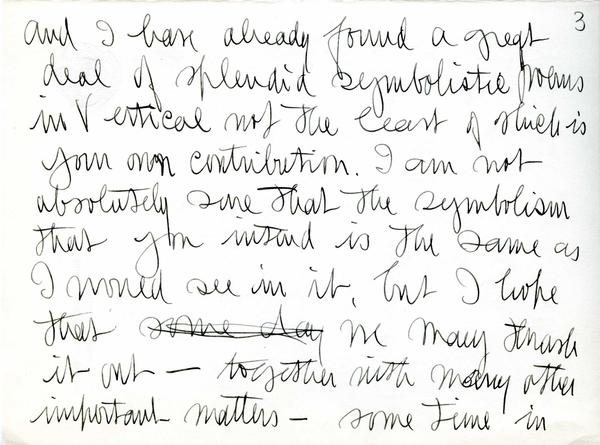 3
and I have already found a great
deal of splendid symbolistic poems
in Vertical not the least of which is
your own contribution. I am not
absolutely sure that the symbolism
that you intend is the same as
I would see in it, but I hope
that ~~some day~~ we may thrash
it out — together with many other
important matters — some time in